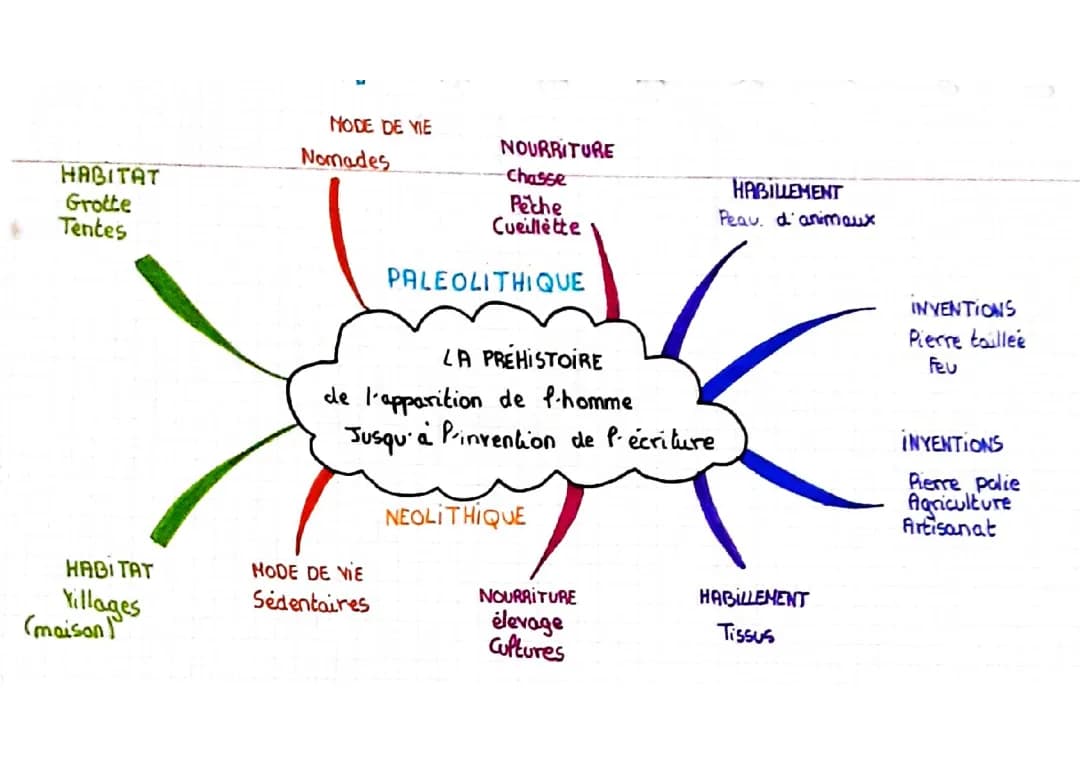 MODE DE VIE
Nomades
NOURRITURE
Chasse
Pêche
Cueillètte
HABITAT
Grotte
Tentes
HABILLEMENT
Peau. d'animaux
PALEOLITHIQUE
INVENTIONS
Pierre taillée
Feu
LA PRÉHISTOIRE
de l'apparition de l'homme
Jusqu'à l'invention de l'écriture
INVENTIONS
Pierre polie
Agriculture
Artisanat
NEOLITHIQUE
HABITAT
Villages
(maison)
MODE DE VIE
Sédentaires
NOURRITURE
élevage
Cultures
HABILLEMENT
Tissus